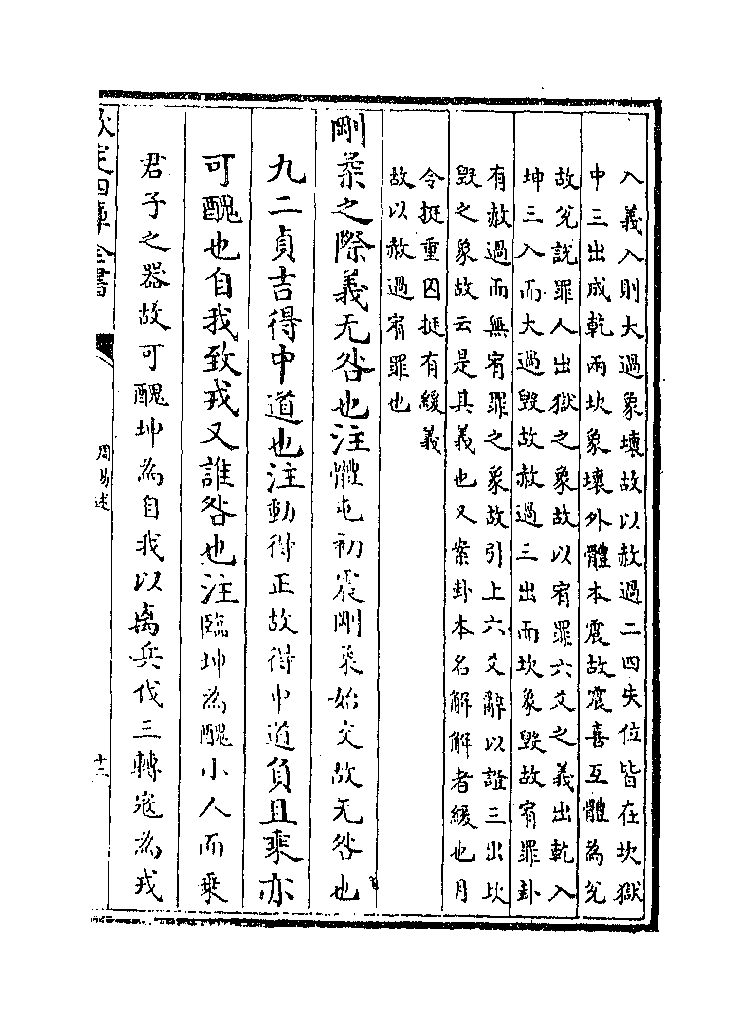 入義入則大過象壞故以赦過二四失位皆在坎獄
中三出成乾兩坎象壞外體本震故震喜互體為兌
故兌說罪人出獄之象故以宥罪六爻之義出乾入
坤三入而大過毀故赦過三出而坎象毀故宥罪卦
有赦過而無宥罪之象故引上六爻辭以證三出坎
毀之象故云是其義也又案卦本名解解者緩也月
令挺重囚挺有緩義
故以赦過宥罪也
剛柔之際義无咎也注體屯初震剛柔始交故无咎也
九二貞吉得中道也注動得正故得中道負且乗亦
可醜也自我致戎又誰咎也注臨坤為醜小人而乗
君子之器故可醜坤為自我以离兵伐三轉寇為戎
欽定四庫全書
周易述
十三